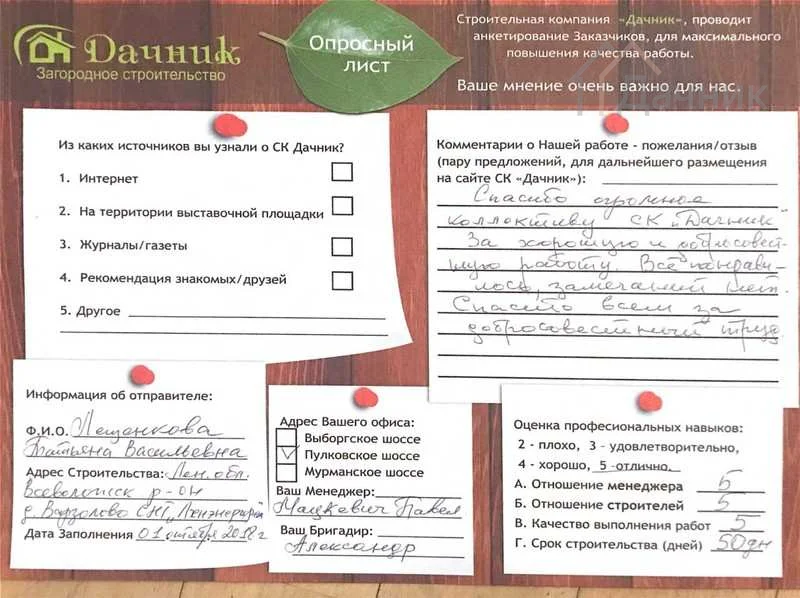 Дачник
Загородное строительство
Опросный
лист
Строительная компания «Дачник», проводит
анкетирование Заказчиков, для максимального
повышения качества работы.
Ваше мнение очень важно для нас.
Дачник
Из каких источников вы узнали о СК Дачник?
1. Интернет
2. На территории выставочной площадки
3. Журналы/газеты
4. Рекомендация знакомых/друзей
5. Другое
Комментарии о Нашей работе - пожелания/отзыв
(пару предложений, для дальнейшего размещения
на сайте СК «Дачник»):
Спасибо огромное
коллективу СК „Дачник"
За хорошую и добросовест-
ную работу. Всё понрави-
лось, замечаний нет.
Спасибо всем за
добросовестный труд
Информация об отправителе:
Ф.И.О. Лещенкова
Татьяна Васильевна
Адрес Строительства: Лен. обл.
Всеволожск р-он
д. Варзолово СНТ
Дата Заполнения 01 октября 2018г
Адрес Вашего офиса:
Выборгское шоссе
Пулковское шоссе
Мурманское шоссе
Ваш Менеджер:
Мацкевич Павел
Ваш Бригадир:
Александр
Оценка профессиональных навыков:
2 - плохо, 3 - удовлетворительно,
4 - хорошо, 5 -отлично.
А. Отношение менеджера 5
Б. Отношение строителей 5
В. Качество выполнения работ 5
Г. Срок строительства (дней) 50дн